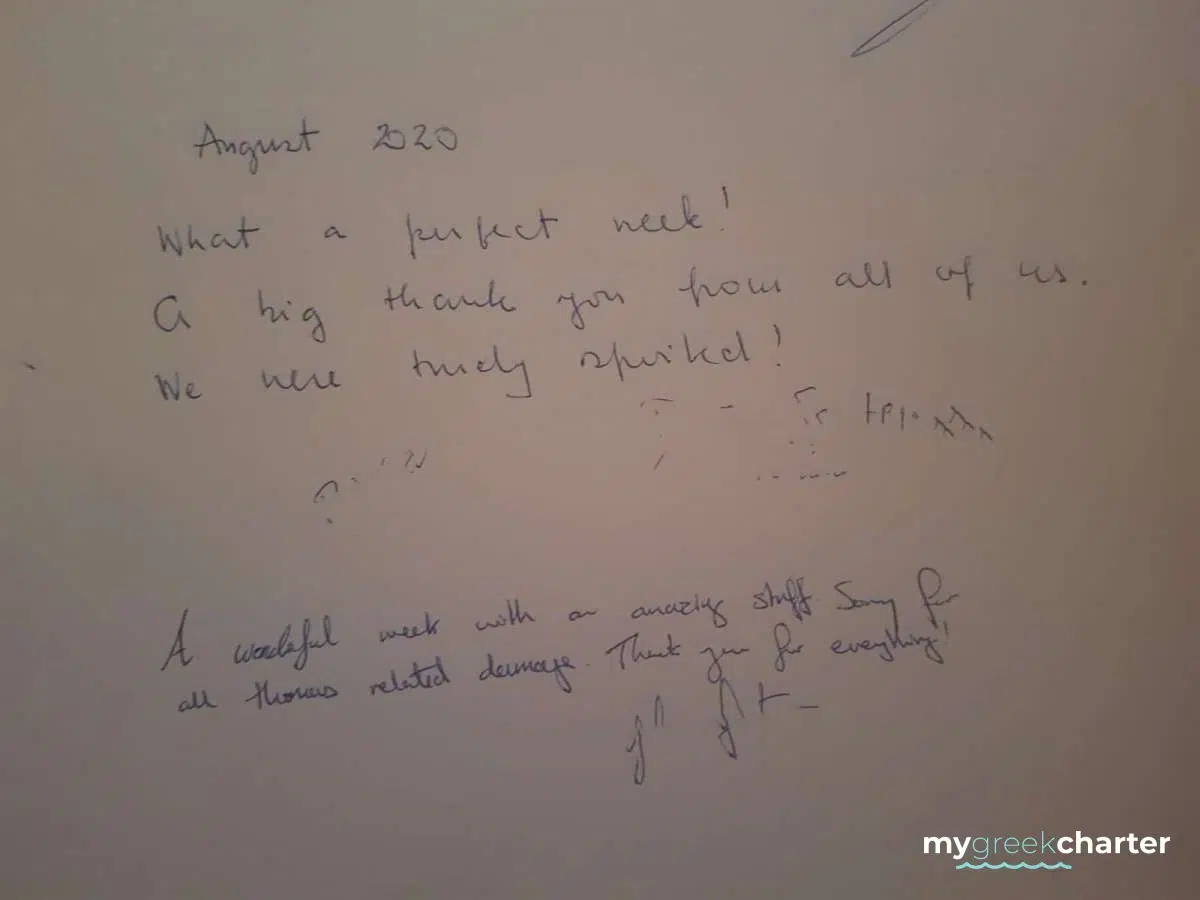 August 2020
What a perfect week!
A big thank you from all of us.
We were truely spoiled!
A wonderful week with an amazing stuff. Sorry for
all thomas related damage. Thank you for everything!
mygreekcharter